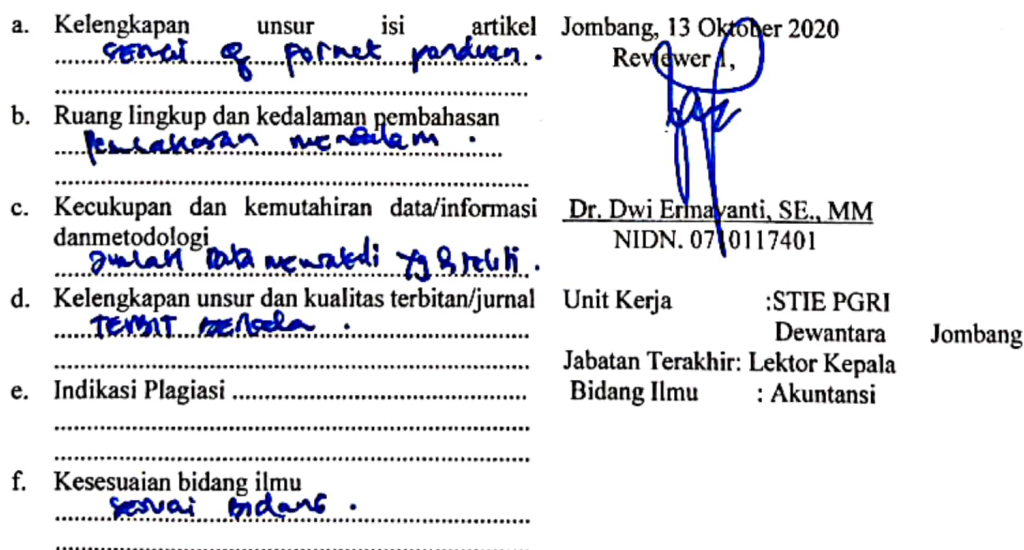 a. Kelengkapan unsur isi artikel
sesuai dg format panduan.
b. Ruang lingkup dan kedalaman pembahasan
pembahasan mendalam.
c. Kecukupan dan kemutahiran data/informasi
danmetodologi
Jumlah data mewakili yg diteliti.
d. Kelengkapan unsur dan kualitas terbitan/jurnal
TERBIT berkala.
e. Indikasi Plagiasi
f. Kesesuaian bidang ilmu
sesuai bidang.
Jombang, 13 Oktober 2020
Reviewer 1,
Dr. Dwi Ermayanti, SE., MM
NIDN. 0710117401
Unit Kerja :STIE PGRI
Dewantara Jombang
Jabatan Terakhir: Lektor Kepala
Bidang Ilmu : Akuntansi